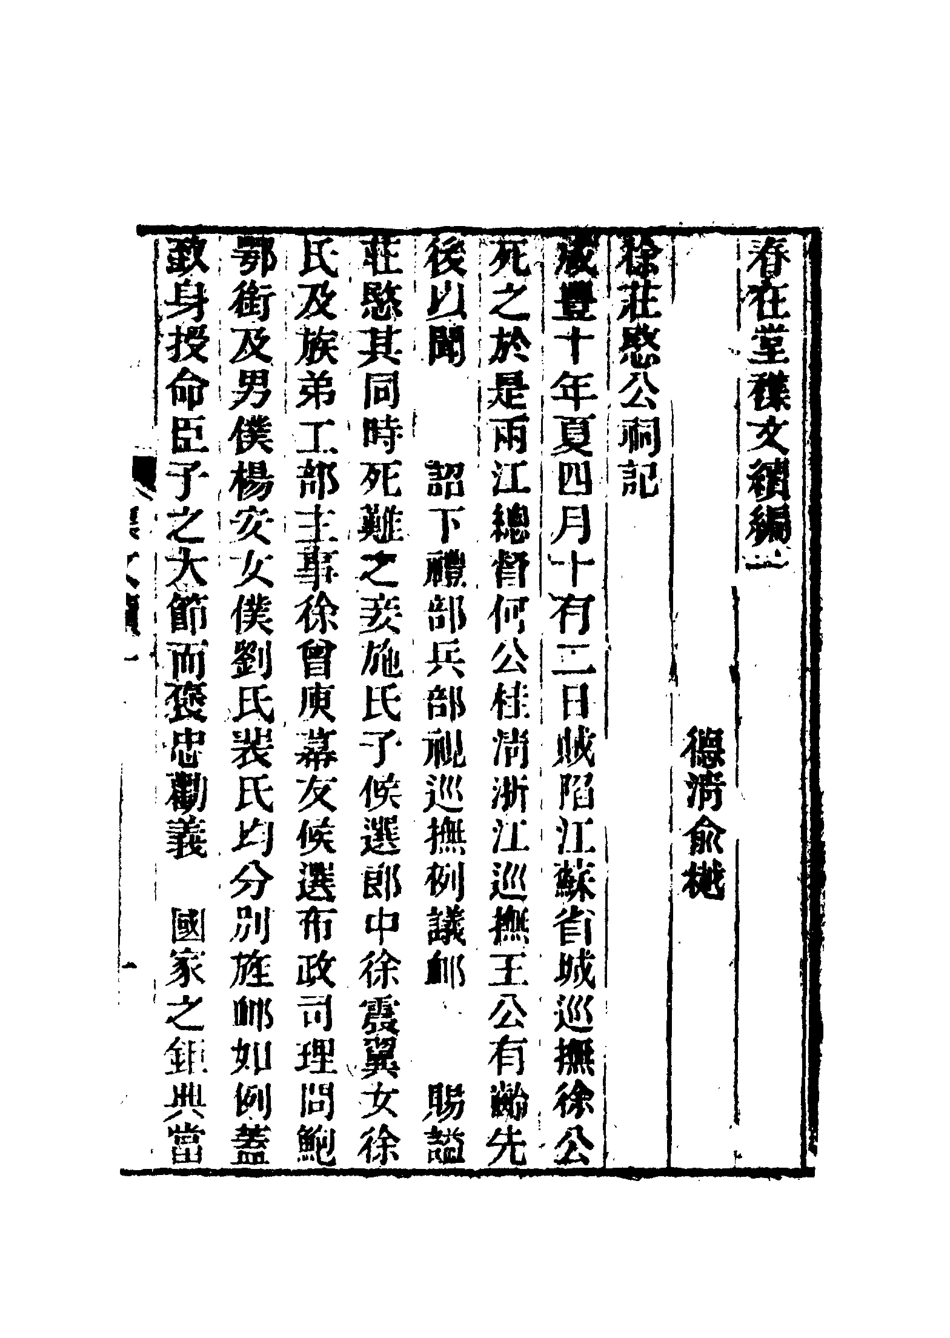 春在堂襍文續編一
德清俞樾
徐莊愍公祠記
咸豐十年夏四月十有二日賊陷江蘇省城巡撫徐公
死之於是兩江總督何公桂清浙江巡撫王公有齡先
後以聞 詔下禮部兵部視巡撫例議卹 賜諡
莊愍其同時死難之妾施氏子候選郎中徐震翼女徐
氏及族弟工部主事徐曾庾幕友候選布政司理問鮑
鄂銜及男僕楊安女僕劉氏裴氏均分別旌卹如例蓋
致身授命臣子之大節而襃忠勸義 國家之鉅典當
襍文續一
一